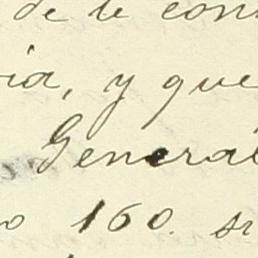 de le con
ia, y que
General
o 160. si